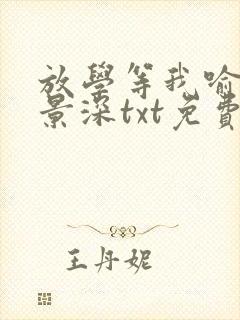 放學等我喻
景深txt免費
王丹妮